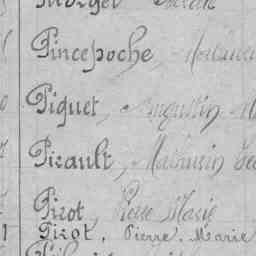 Pincepoche, Mathurin
Piquet, Augustin M
Pirault, Mathurin
Pirot, Pierre Marie
Pirot, Pierre, Marie